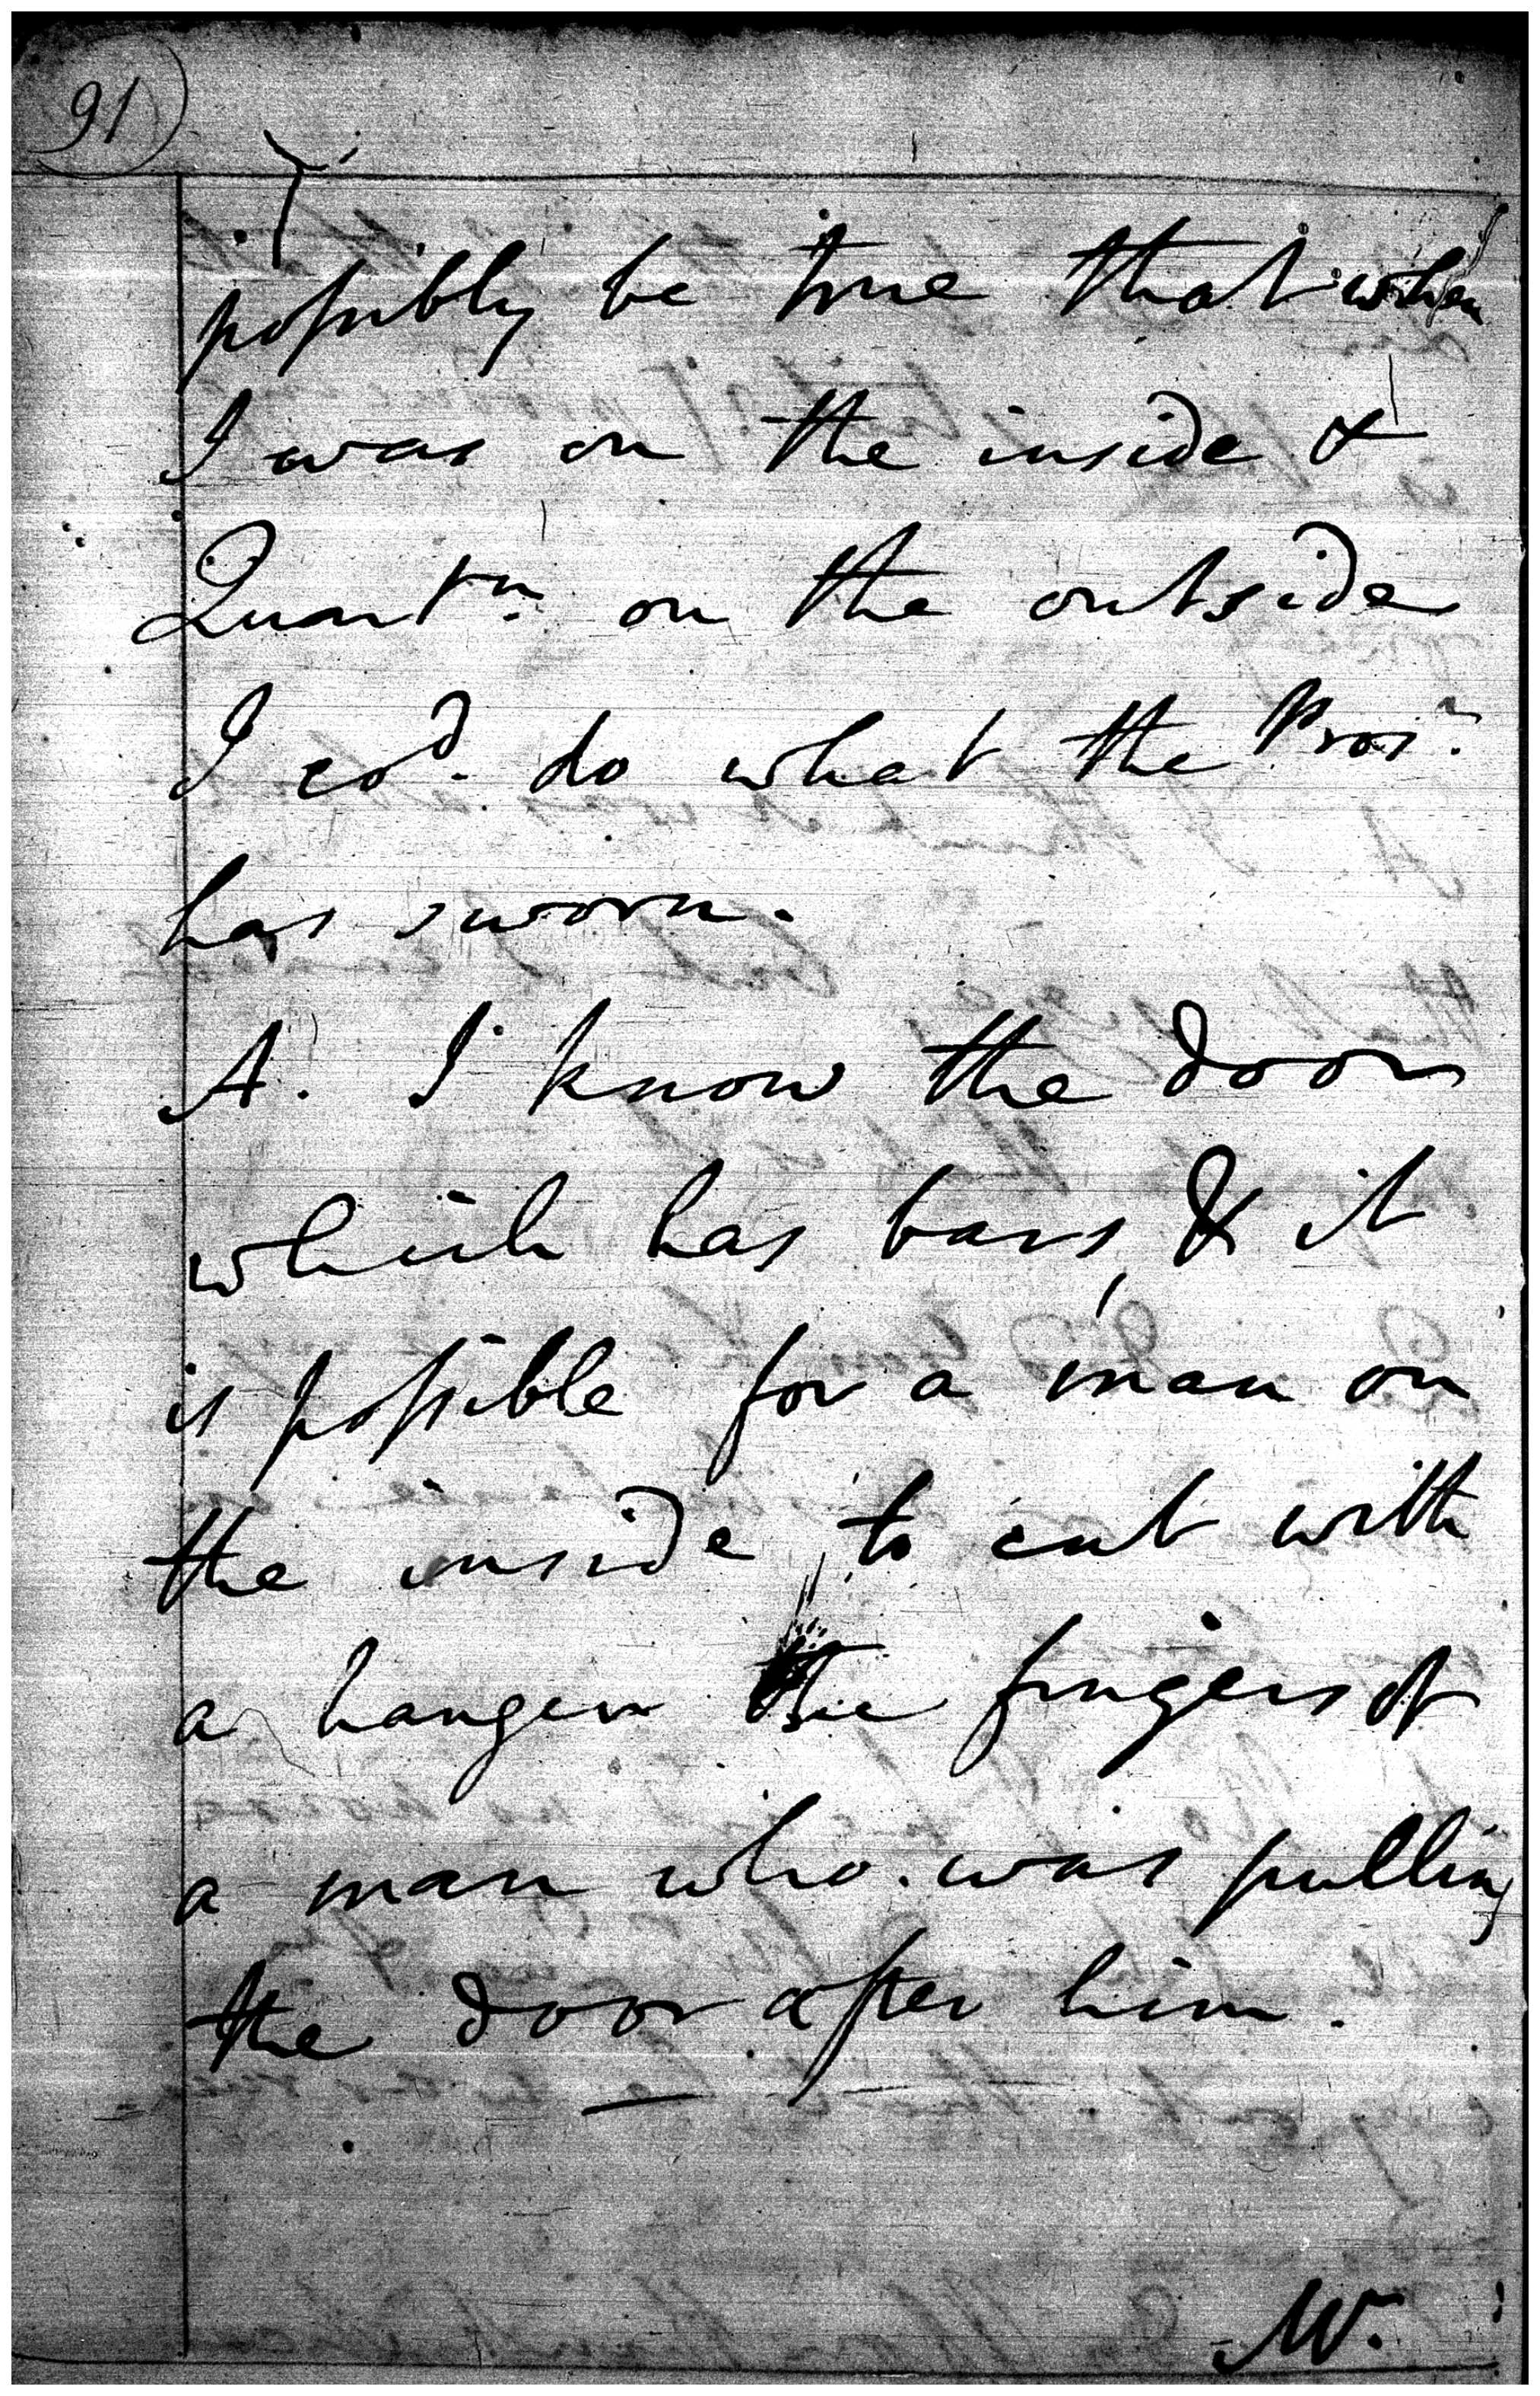 91
possibly be true that when
I was on the inside &
Quartrn on the outside
I cod. do what the Prosr.
has sworn.
A. I know the door
which has bars, & it
is possible for a man on
the inside to cut with
a hanger the fingers of
a man who was pulling
the door after him.
W.